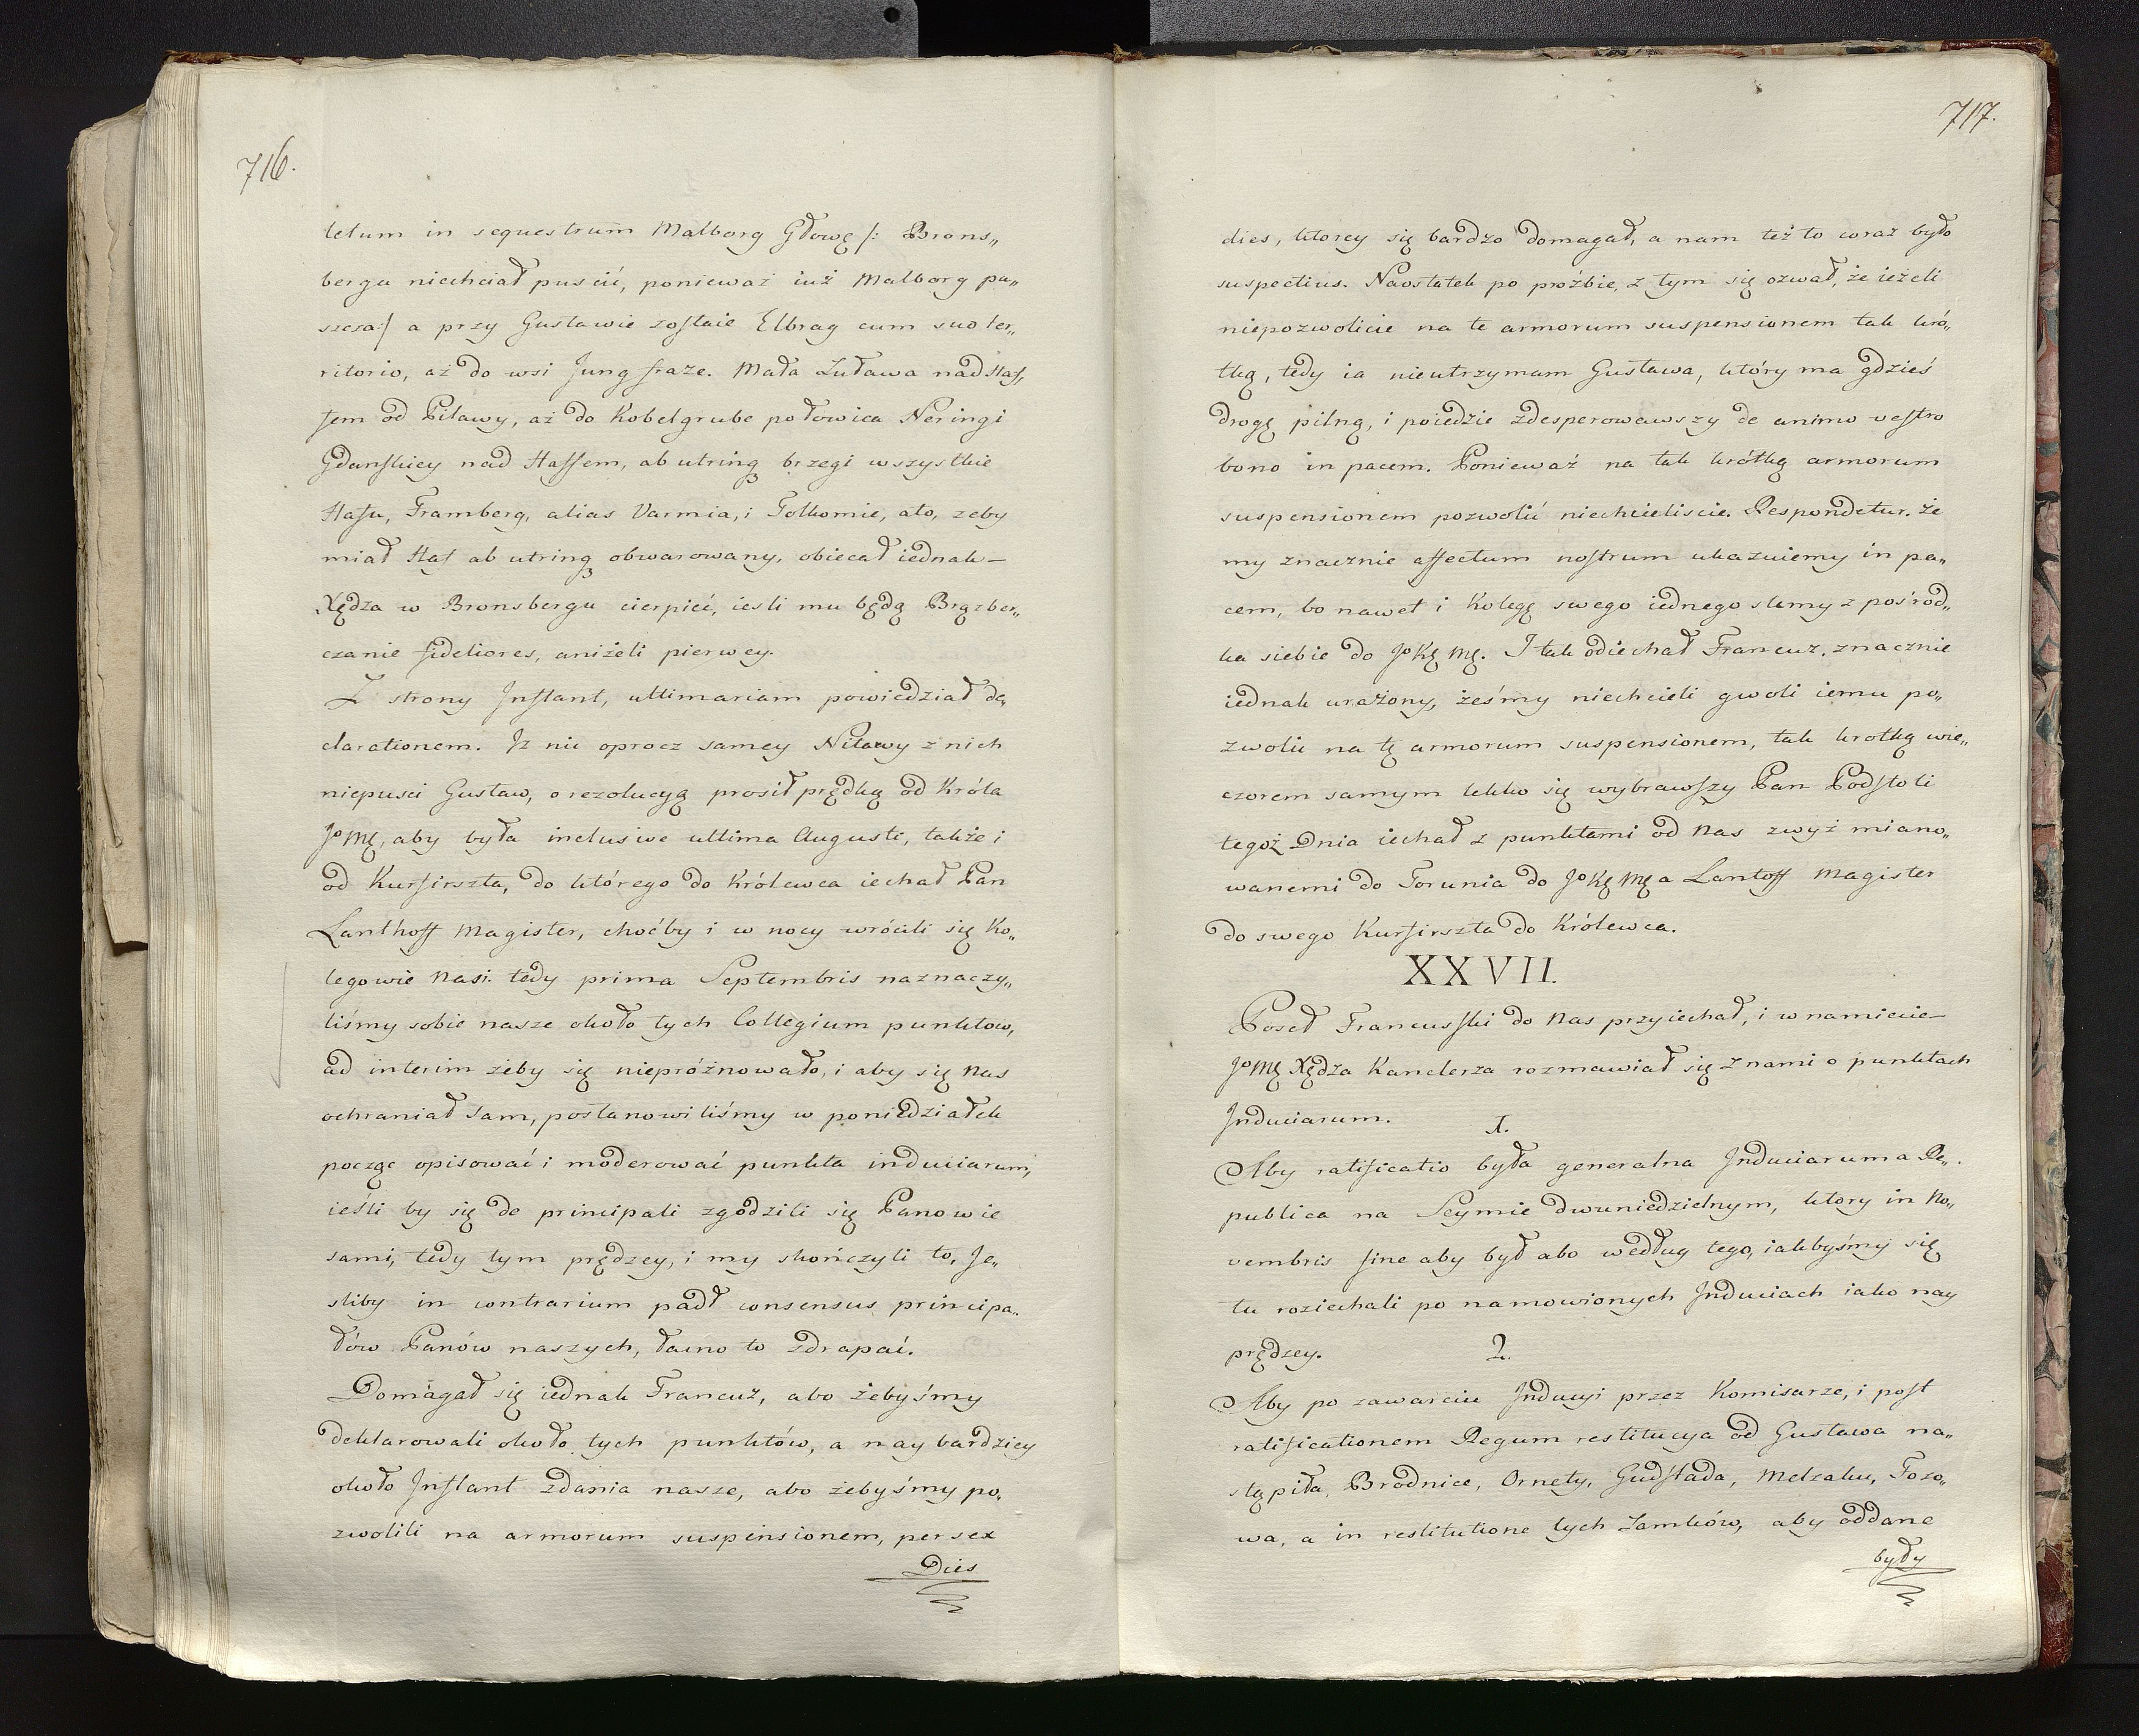 716.
letum in sequestrum Malborg Głowę /: Brons„
bergu niechciał puscić, ponieważ iuż Malborg pu„
szcza:/ a przy Gustawie zostaie Elbrąg cum suo ter„
ritorio, aż do wsi Jungfraze. Mała Żuława nad Haf„
fem od Piławy, aż do Kobelgrube połowica Neringi
Gdanskiey nad Haffem, ab utrinqȝ brzegi wszystkie
Hafu, Framberg, alias Varmia, i Tolkomie, ato, zeby
miał Haf ab utrinqȝ obwarowany, obiecał iednak
Xiędza w Bronsbergu cierpieć, iesli mu będą Brązber„
czanie fideliores, aniżeli pierwey.
Z strony Inflant, ultimariam powiedział de„
clarationem. Iż nic oprocz samey Nitawy z nich
niepusci Gustaw, o rezolucyą prosił prędką od Króla
Jo Mę, aby była inclusive ultima Augusti, także i
od Kurfirszta, do którego do Królewca iechał Pan
Lanthoff Magister, choćby i w nocy wrócili się Ko„
legowie nasi. tedy prima Septembris naznaczy„
liśmy sobie nasze około tych Collegium punktow,
ad interim żeby się niepróżnowało, i aby się nas
ochraniał sam, postanowiliśmy w poniedziałek
począc opisować i moderować punkta induciarum,
ieśli by się de principali zgodzili się Panowie
sami, tedy tym prędzey, i my skończyli to, Je„
sliby in contrarium padł consensus principa„
łów Panów naszych, łacno to zdrapać.
Domagał się iednak Francuz, abo żebyśmy
deklarowali około tych punktów, a naybardziey
około Inflant zdania nasze, abo żebyśmy po„
zwolili na armorum suspinsionem, per sex
Dies
717.
dies, ktorey się bardzo domagał, a nam też to coraz było
suspectius. Naostatek po prożbie, z tym się ozwał, że ieżeli
niepozwolicie na te armorum suspensionem tak kró„
tką, tedy ia nieutrzymam Gustawa, który ma gdzieś
drogę pilną, i poiedzie zdesperowawszy de animo vestro
bono in pacem. Ponieważ na tak krótką armorum
suspensionem pozwolić niechcieliscie. Respondetur. że
my znacznie affectum nostrum ukazuiemy in pa„
cem, bo nawet i Kolegę swego iednego slemy z pośrod„
ka siebie do Jo Kę Mę. I tak odiechał Francuz. znacznie
iednak urażony, żeśmy niechcieli gwoli iemu po„
zwolić na tę armorum suspensionem, tak krotką wie„
czorem samym lekko się wybrawszy Pan Podstoli
tegoż Dnia iechał z punktami od nas zwyż miano„
wanemi do Torunia do Jo Kę Mę a Lantoff Magister
do swego Kurfirszta do Królewca.
XXVII.
Poseł Francusski do nas przyiechał, i w namiecie
Jo Mę Xiędza Kanclerza rozmawiał się z nami o punktach
Induciarum.
1.
Aby ratificatio była generalna Induciarum a Re„
publica na Seymie dwuniedzielnym, ktory in No„
vembris fine aby był abo według tego, iakbyśmy się
tu roziechali po namowionych Induciach iako nay
prędzey.
2.
Aby po zawarciu Inducyi przez Komisarze, i post
ratificationem Regum restitucya od Gustawa na„
stąpiła, Brodnice, Ornety, Gudstada, Melzaku, Tozo„
wa, a in restitutione tych Zamków, aby oddane
były